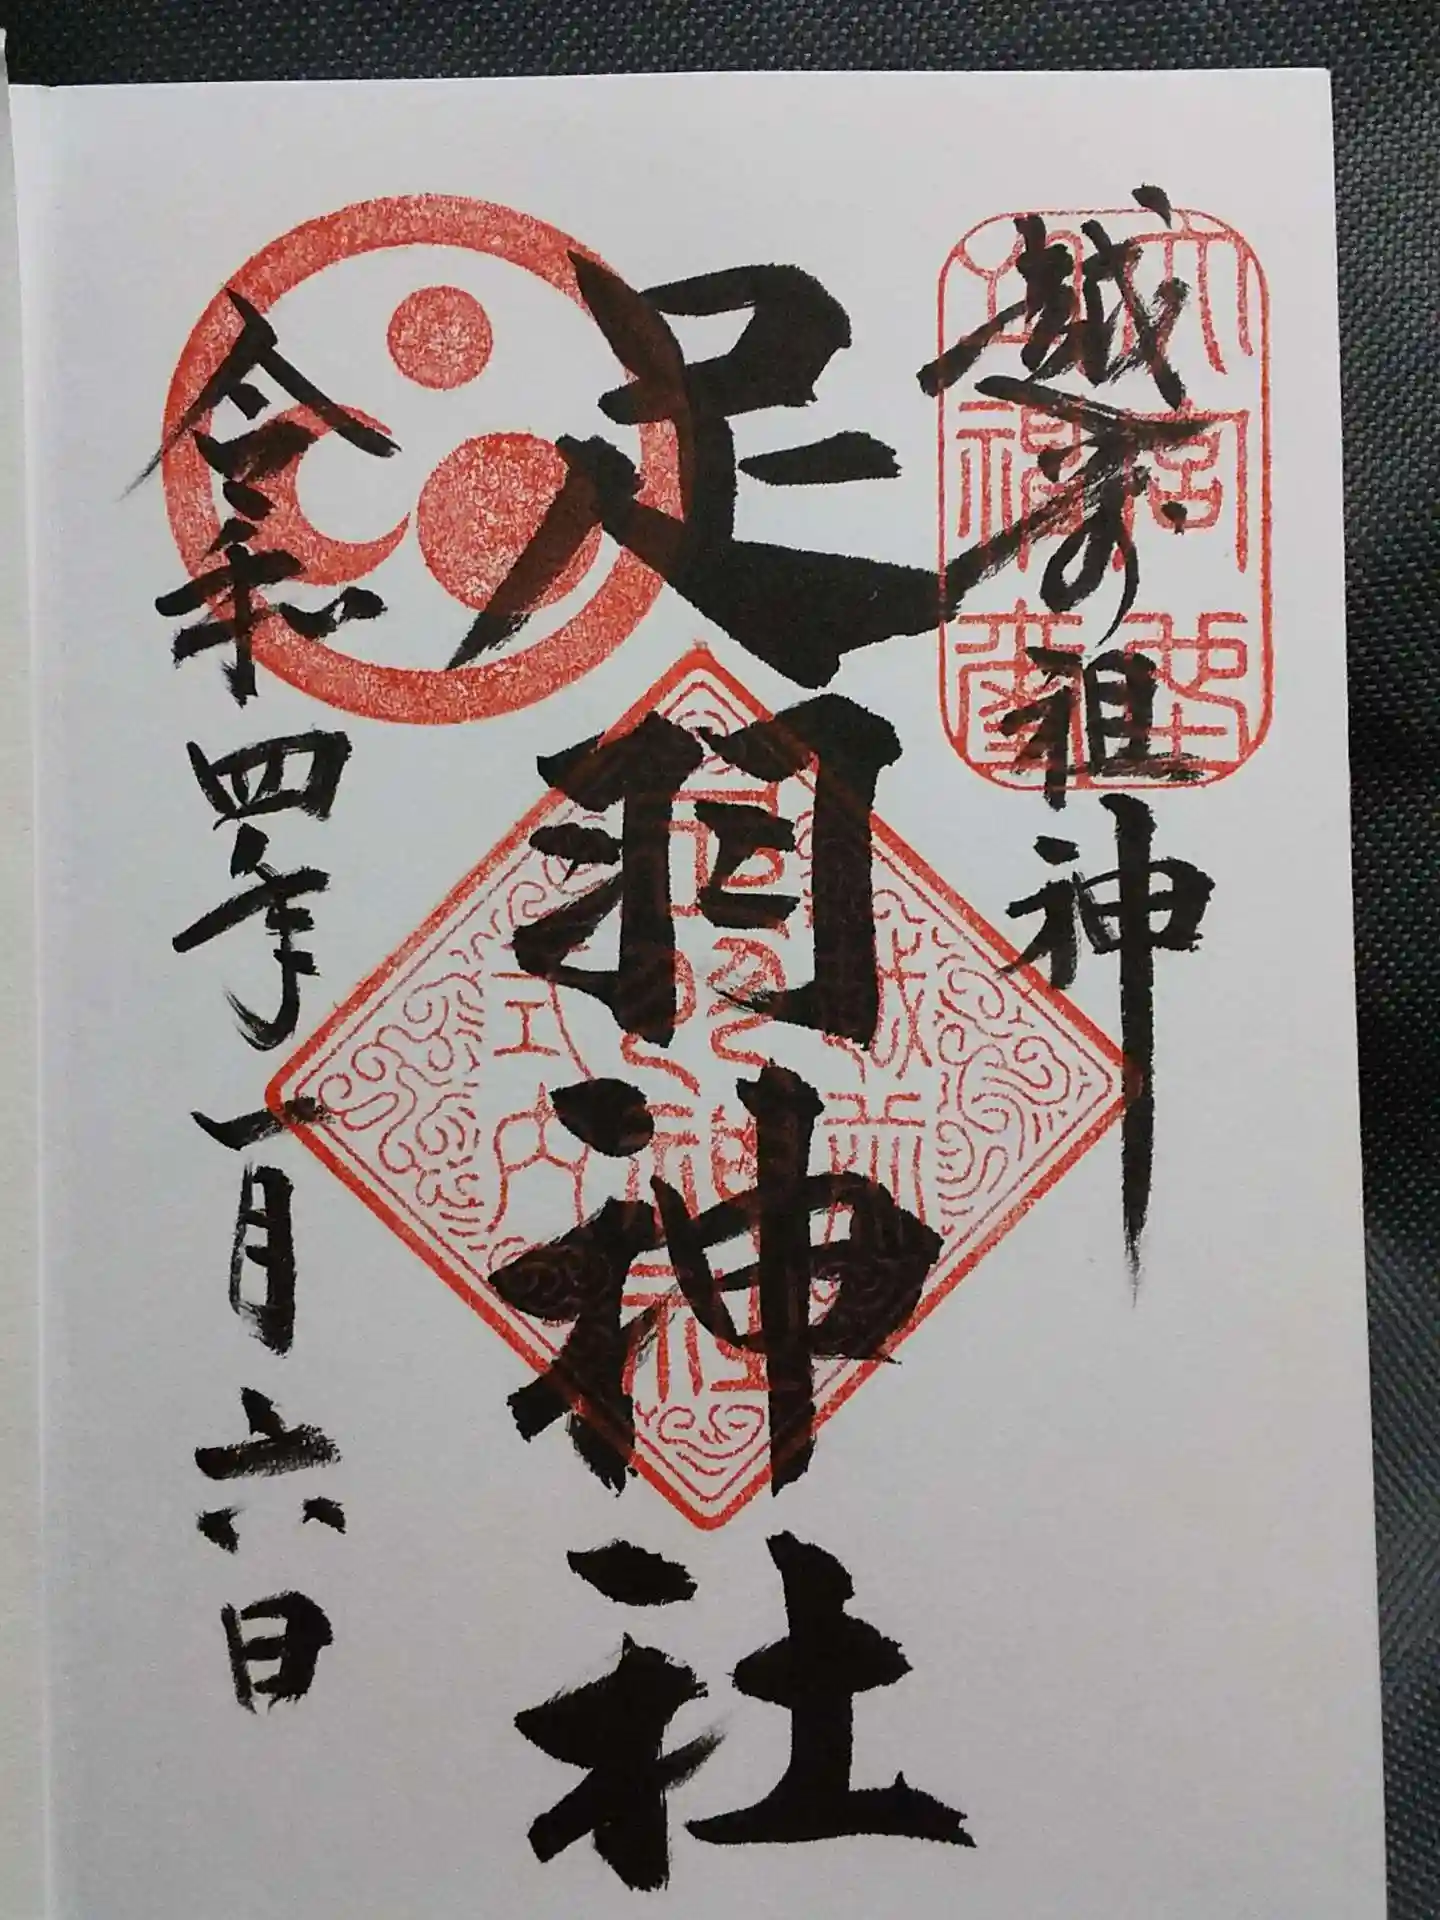 越前の祖神
足羽神社
令和四年一月六日
足羽神社